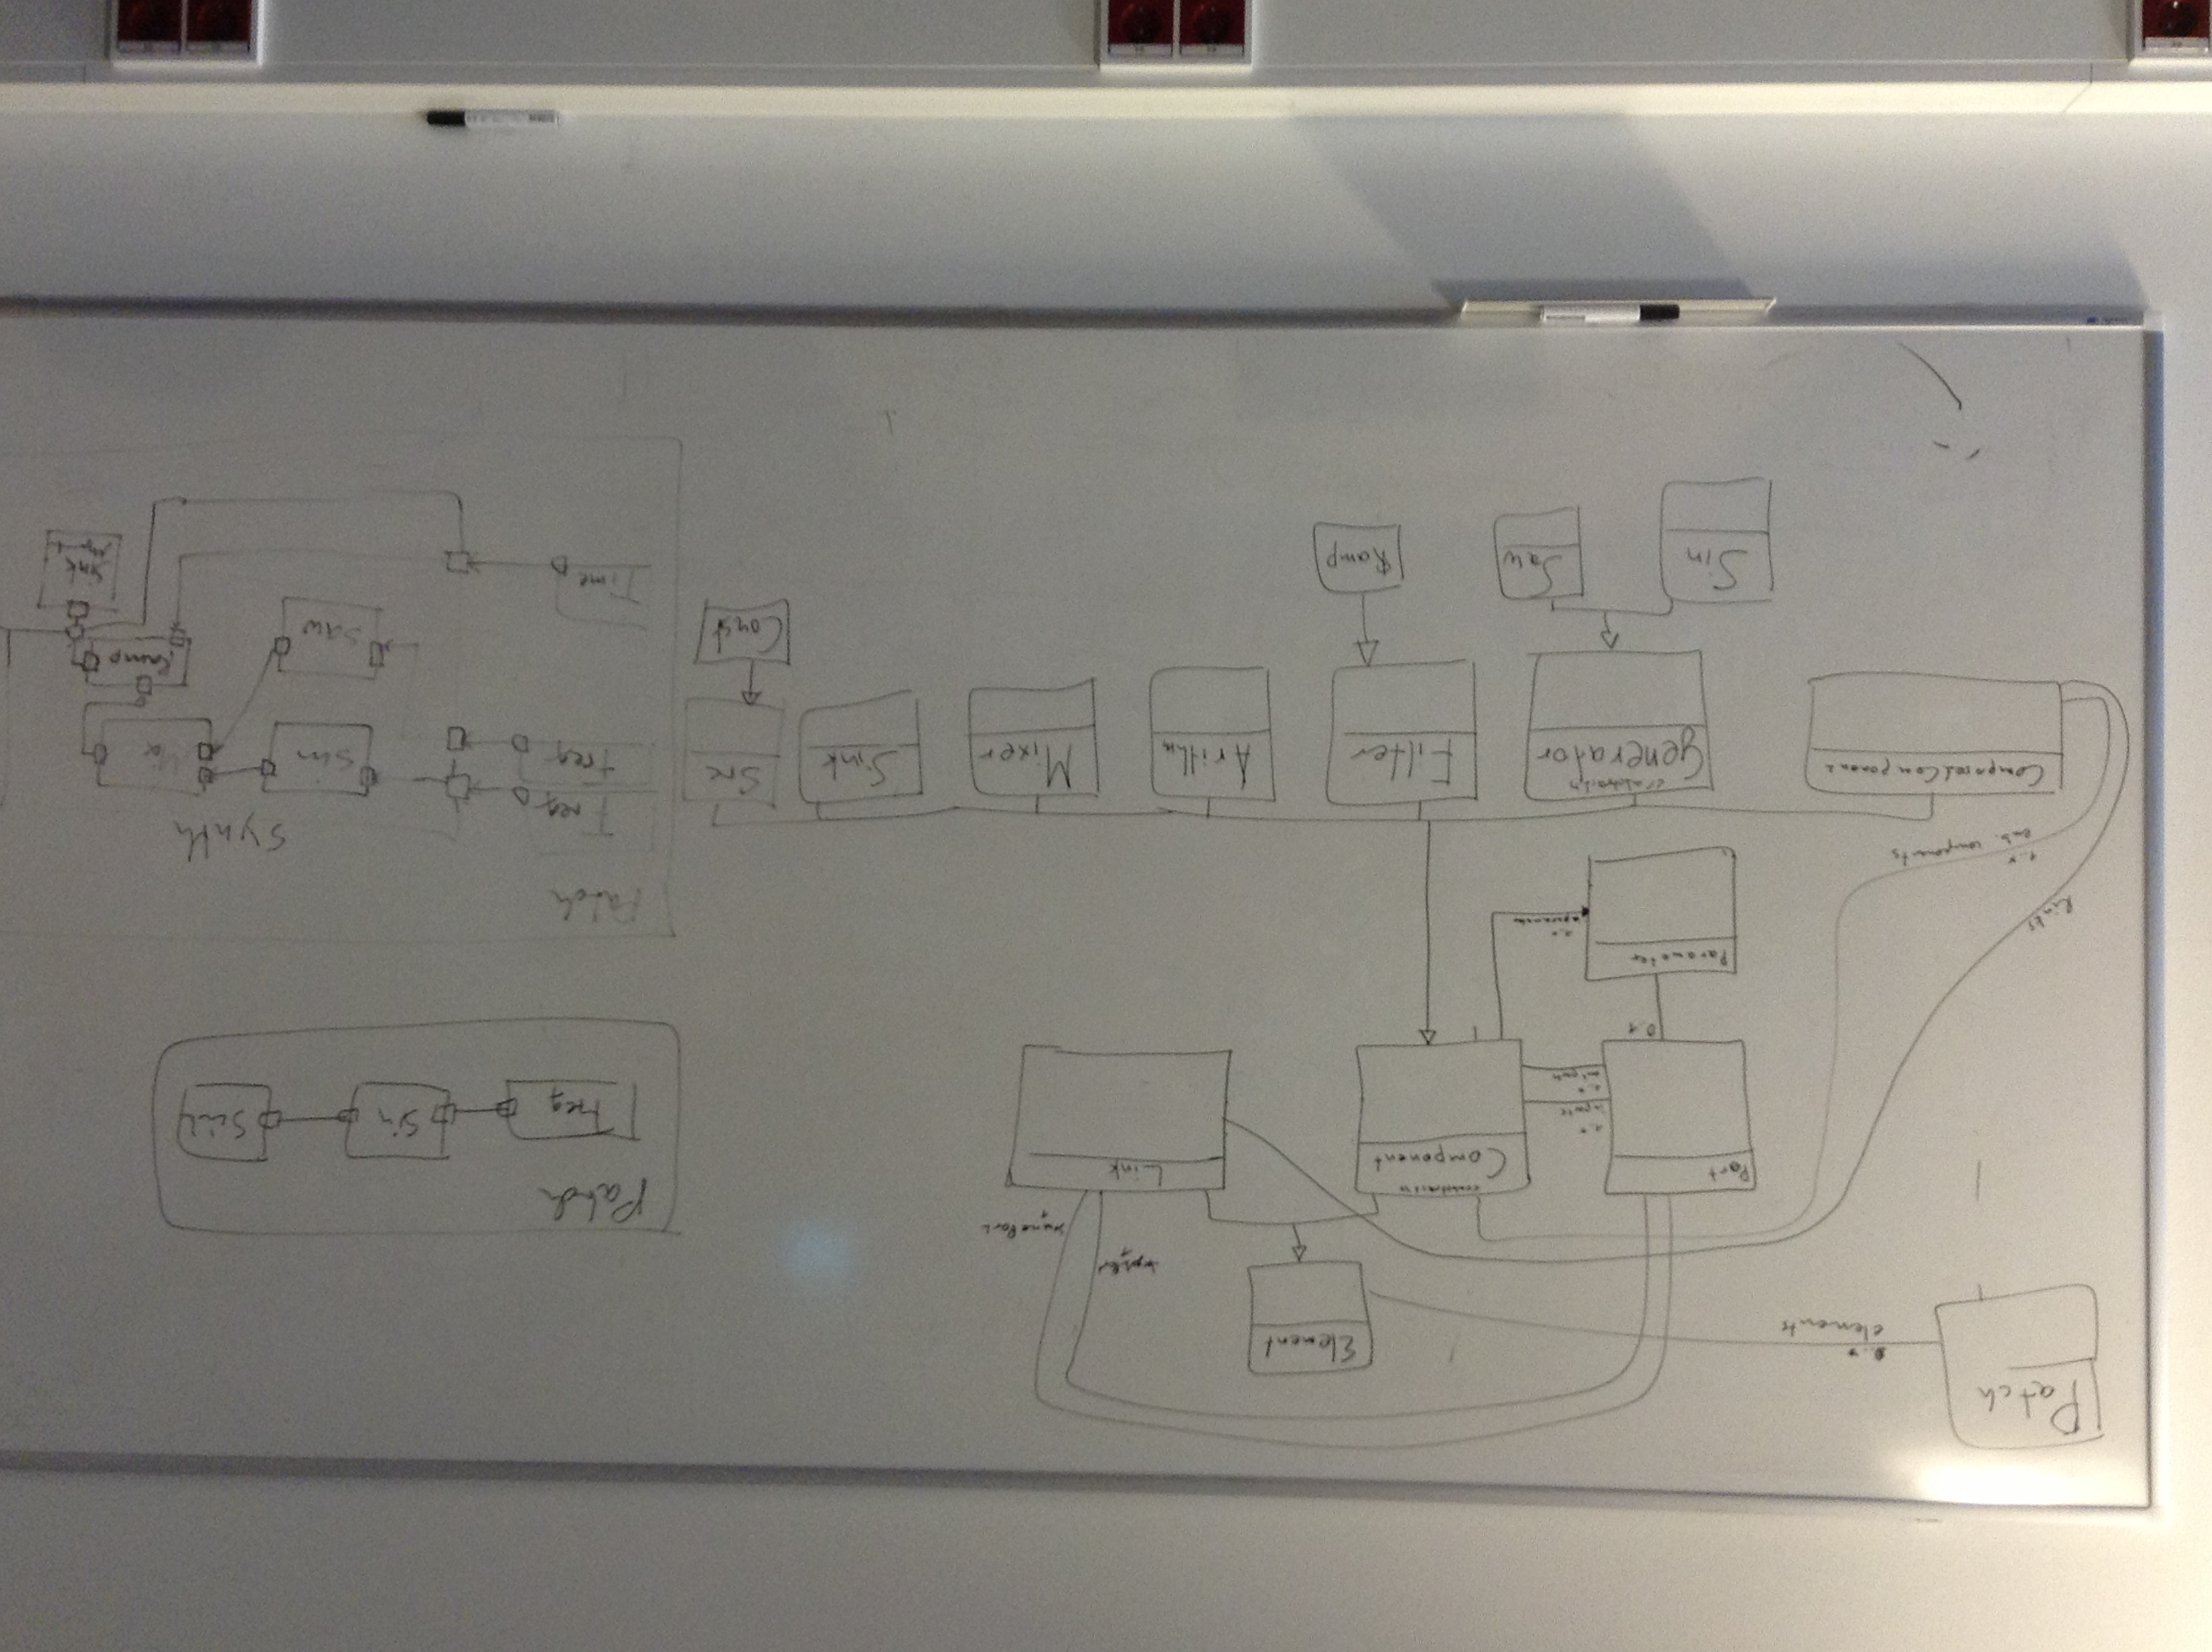 Patch
0..*
elements
Element
targetPort
1
sourcePort
1
Port
<<abstract>>
Component
Link
1..*
inports
1..*
outports
0..1
Parameter
parameter
links
1..*
emb. components
ComposedComponent
<<abstract>>
Generator
Filter
Arithm
Mixer
Sink
Src
Const
Sin
Saw
Ramp
Patch
Freq
Sin
Sink
Patch
Synth
Freq
Freq
Sin
Mix
Saw
Ramp
Time
Sink